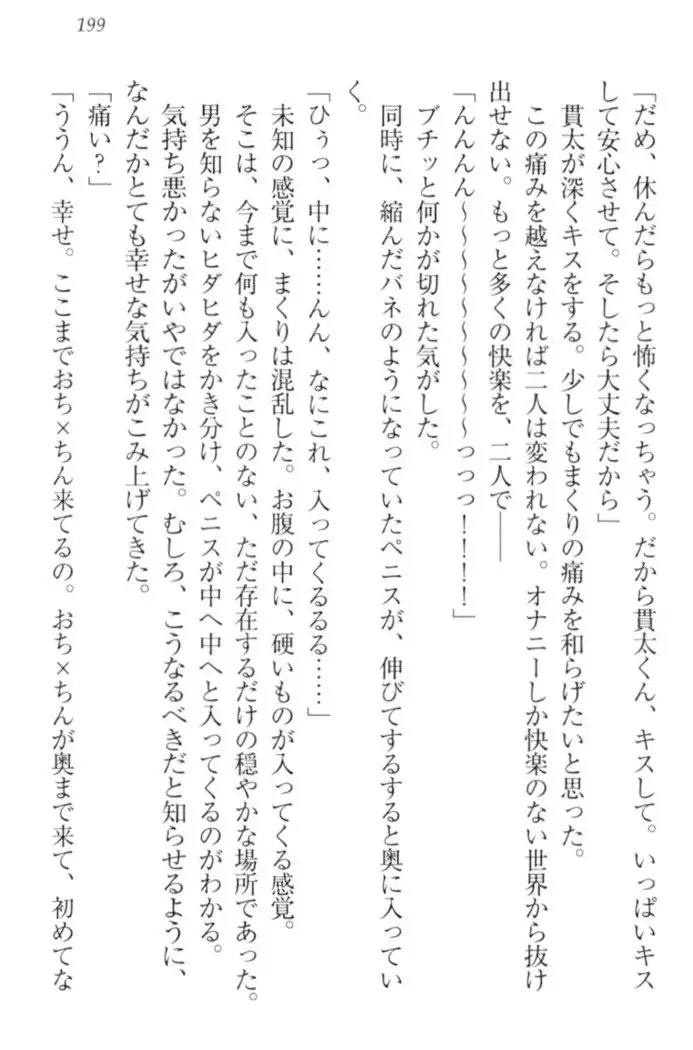 199
「だめ、休んだらもっと怖くなっちゃう。だから貫太くん、キスして。いっぱいキス
して安心させて。そしたら大丈夫だから」
貫太が深くキスをする。少しでもまくりの痛みを和らげたいと思った。
この痛みを越えなければ二人は変われない。オナニーしか快楽のない世界から抜け
出せない。もっと多くの快楽を、二人で――
「んんんん～～～～～～～～～っっっ！！！！」
ブチッと何かが切れた気がした。
同時に、縮んだバネのようになっていたペニスが、伸びてするすると奥に入ってい
く。
「ひぅっ、中に……んん、なにこれ、入ってくるるる……」
未知の感覚に、まくりは混乱した。お腹の中に、硬いものが入ってくる感覚。
そこは、今まで何も入ったことのない、ただ存在するだけの穏やかな場所であった。
男を知らないヒダヒダをかき分け、ペニスが中へ中へと入ってくるのがわかる。
気持ち悪かったがいやではなかった。むしろ、こうなるべきだと知らせるように、
なんだかとても幸せな気持ちがこみ上げてきた。
「痛い？」
「ううん、幸せ。ここまでおち×ちん来てるの。おち×ちんが奥まで来て、初めてな